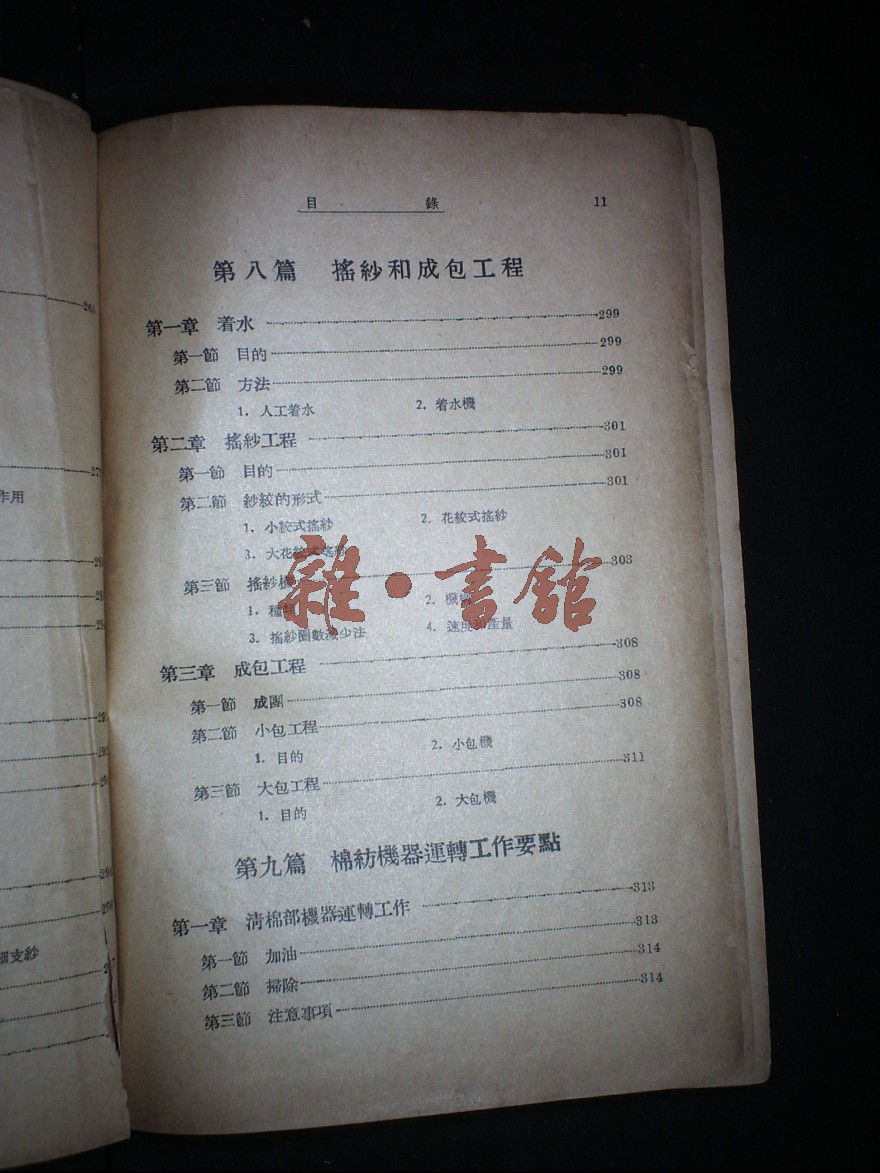 目 錄 11
第八篇 搖紗和成包工程
第一章 着水 299
第一節 目的 299
第二節 方法 299
1. 人工着水 2. 着水機
第二章 搖紗工程 301
第一節 目的 301
第二節 紗紋的形式 301
1. 小絞式搖紗 2. 花絞式搖紗
3. 大花絞式搖紗
第三節 搖紗機 303
1. 種類 2. 機構
3. 搖紗圈數減少法 4. 速度和產量
第三章 成包工程 308
第一節 成團 308
第二節 小包工程 308
1. 目的 2. 小包機
第三節 大包工程 311
1. 目的 2. 大包機
第九篇 棉紡機器運轉工作要點
第一章 淸棉部機器運轉工作 313
第一節 加油 313
第二節 掃除 314
第三節 注意事項 314
雜·書館
作用
細支紗